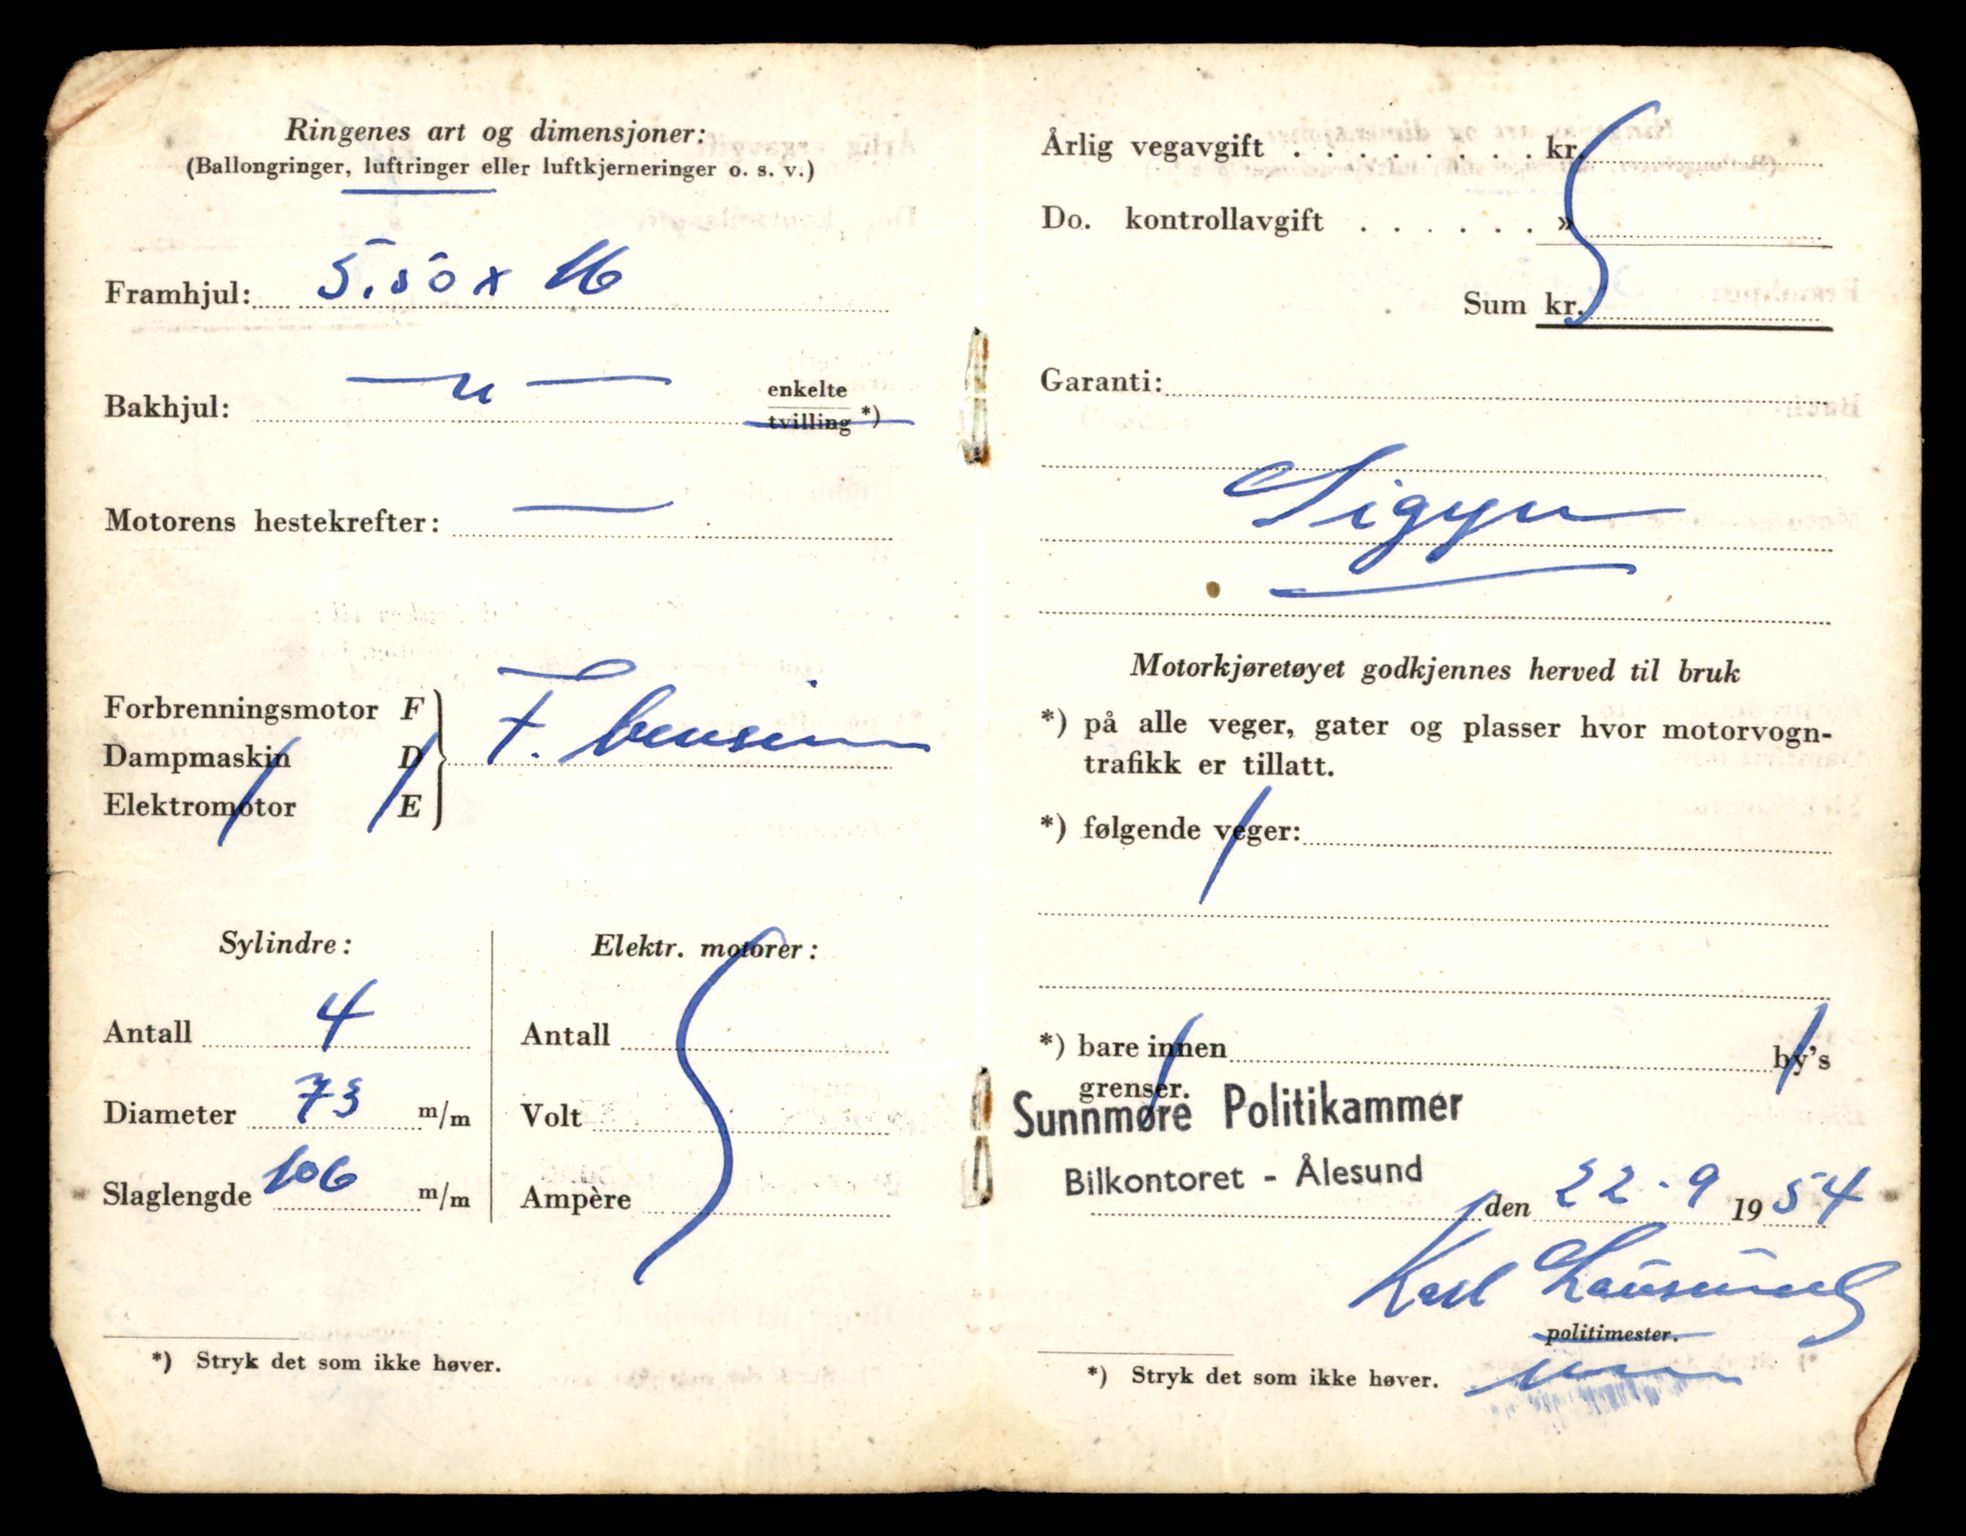 Ringenes art og dimensjoner:
(Ballongringer, luftringer eller luftkjerneringer o. s. v.)
Framhjul: 5.50 x 16
Bakhjul: — " — enkelte
tvilling *)
Motorens hestekrefter: —
Forbrenningsmotor F
Dampmaskin D
Elektromotor E
F. bensin
Sylindre:
Antall 4
Diameter 73 m/m
Slaglengde 106 m/m
Elektr. motorer:
Antall
Volt
Ampère
*) Stryk det som ikke høver.
Årlig vegavgift . . . . . . . . kr.
Do. kontrollavgift . . . . . . »
Sum kr.
Garanti:
Sigyn
Motorkjøretøyet godkjennes herved til bruk
*) på alle veger, gater og plasser hvor motorvogn-
trafikk er tillatt.
*) følgende veger:
*) bare innen by's
grenser.
Sunnmøre Politikammer
Bilkontoret - Ålesund
den 22-9 1954
Karl
politimester.
*) Stryk det som ikke høver.